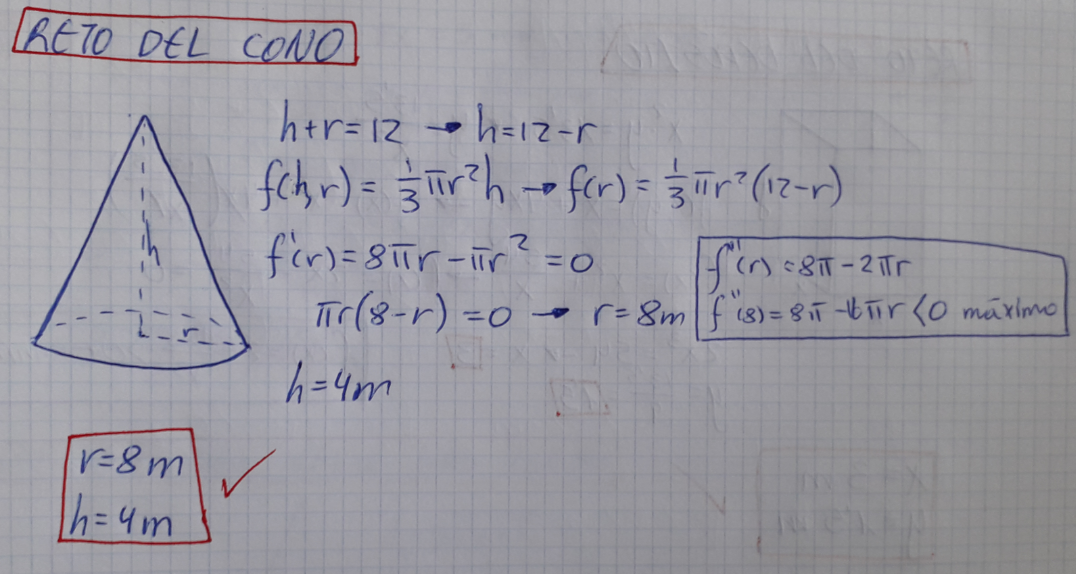 RETO DEL CONO
h+r=12 → h=12-r
f(h,r) = 1/3 πr²h → f(r) = 1/3 πr²(12-r)
f'(r) = 8πr - πr² = 0
πr(8-r) = 0 → r=8m
f''(r) = 8π - 2πr
f''(8) = 8π - 16πr < 0 máximo
h
r
h=4m
r=8m
h=4m